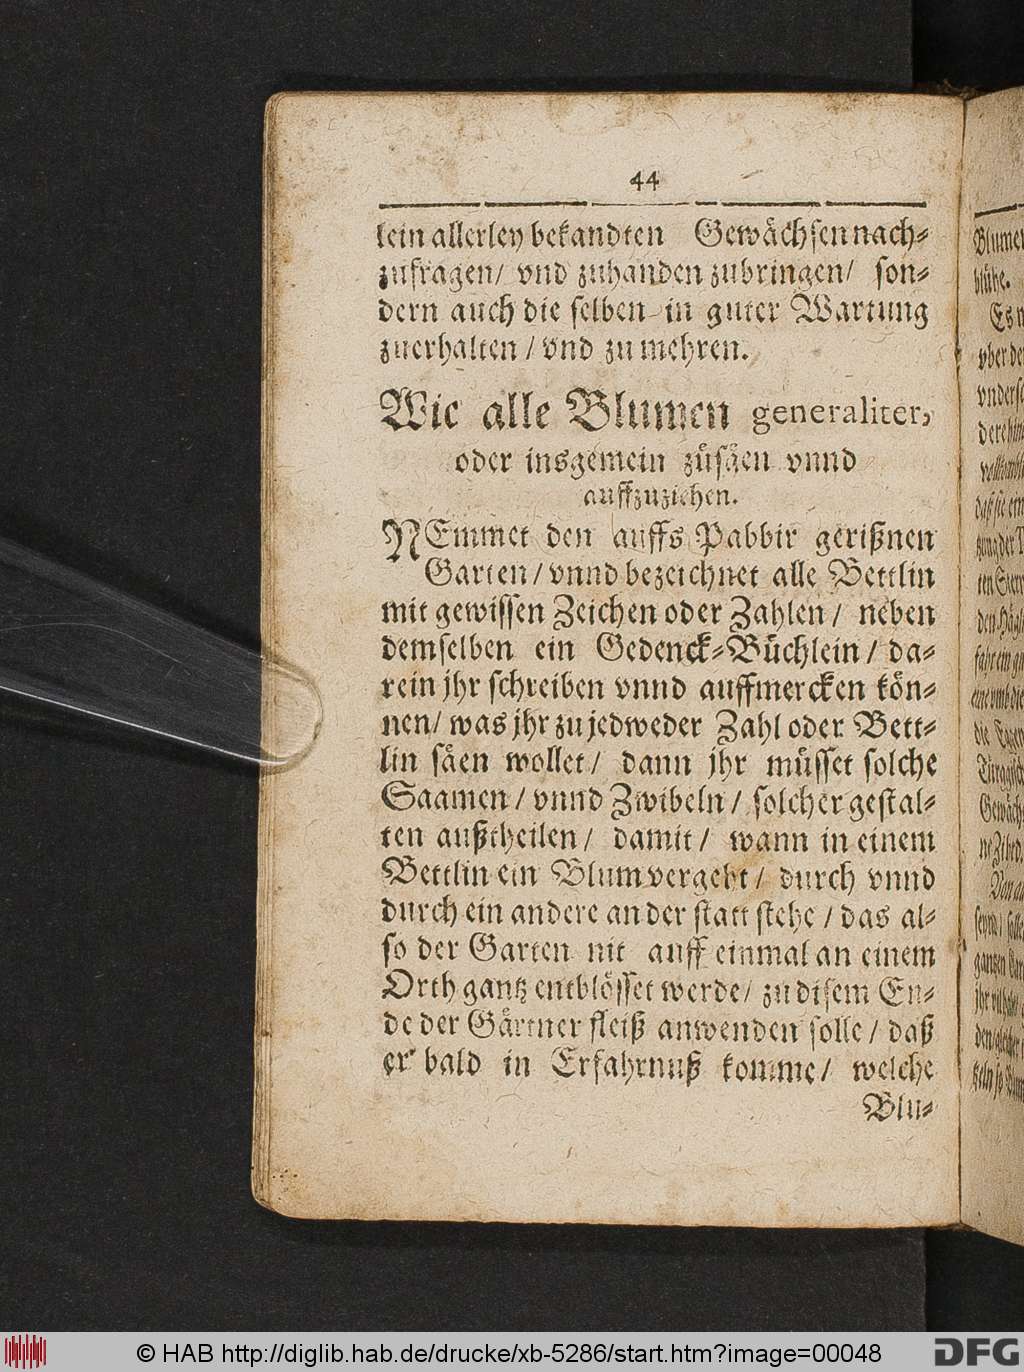 44
lein allerley bekandten Gewächsen nach-
zufragen/ vnd zuhanden zubringen/ son-
dern auch die selben in guter Wartung
zuerhalten / vnd zu mehren.
Wie alle Blumen generaliter,
oder insgemein züsäen vnnd
auffzuziehen.
NEmmet den auffs Pabbir gerißnen
Garten / vnnd bezeichnet alle Bettlin
mit gewissen Zeichen oder Zahlen / neben
demselben ein Gedenck-Büchlein / da-
rein jhr schreiben vnnd auffmercken kön-
nen/ was jhr zu jedweder Zahl oder Bett-
lin säen wollet / dann jhr müsset solche
Saamen / vnnd Zwibeln / solcher gestal-
ten außtheilen / damit / wann in einem
Bettlin ein Blum vergeht / durch vnnd
durch ein andere an der statt stehe / das al-
so der Garten nit auff einmal an einem
Orth gantz entblösset werde / zu disem En-
de der Gärtner fleiß anwenden solle / daß
er bald in Erfahrnuß komme / welche
Blu-
Blumen
blühe.
Es
vber
© HAB http://diglib.hab.de/drucke/xb-5286/start.htm?image=00048
DFG